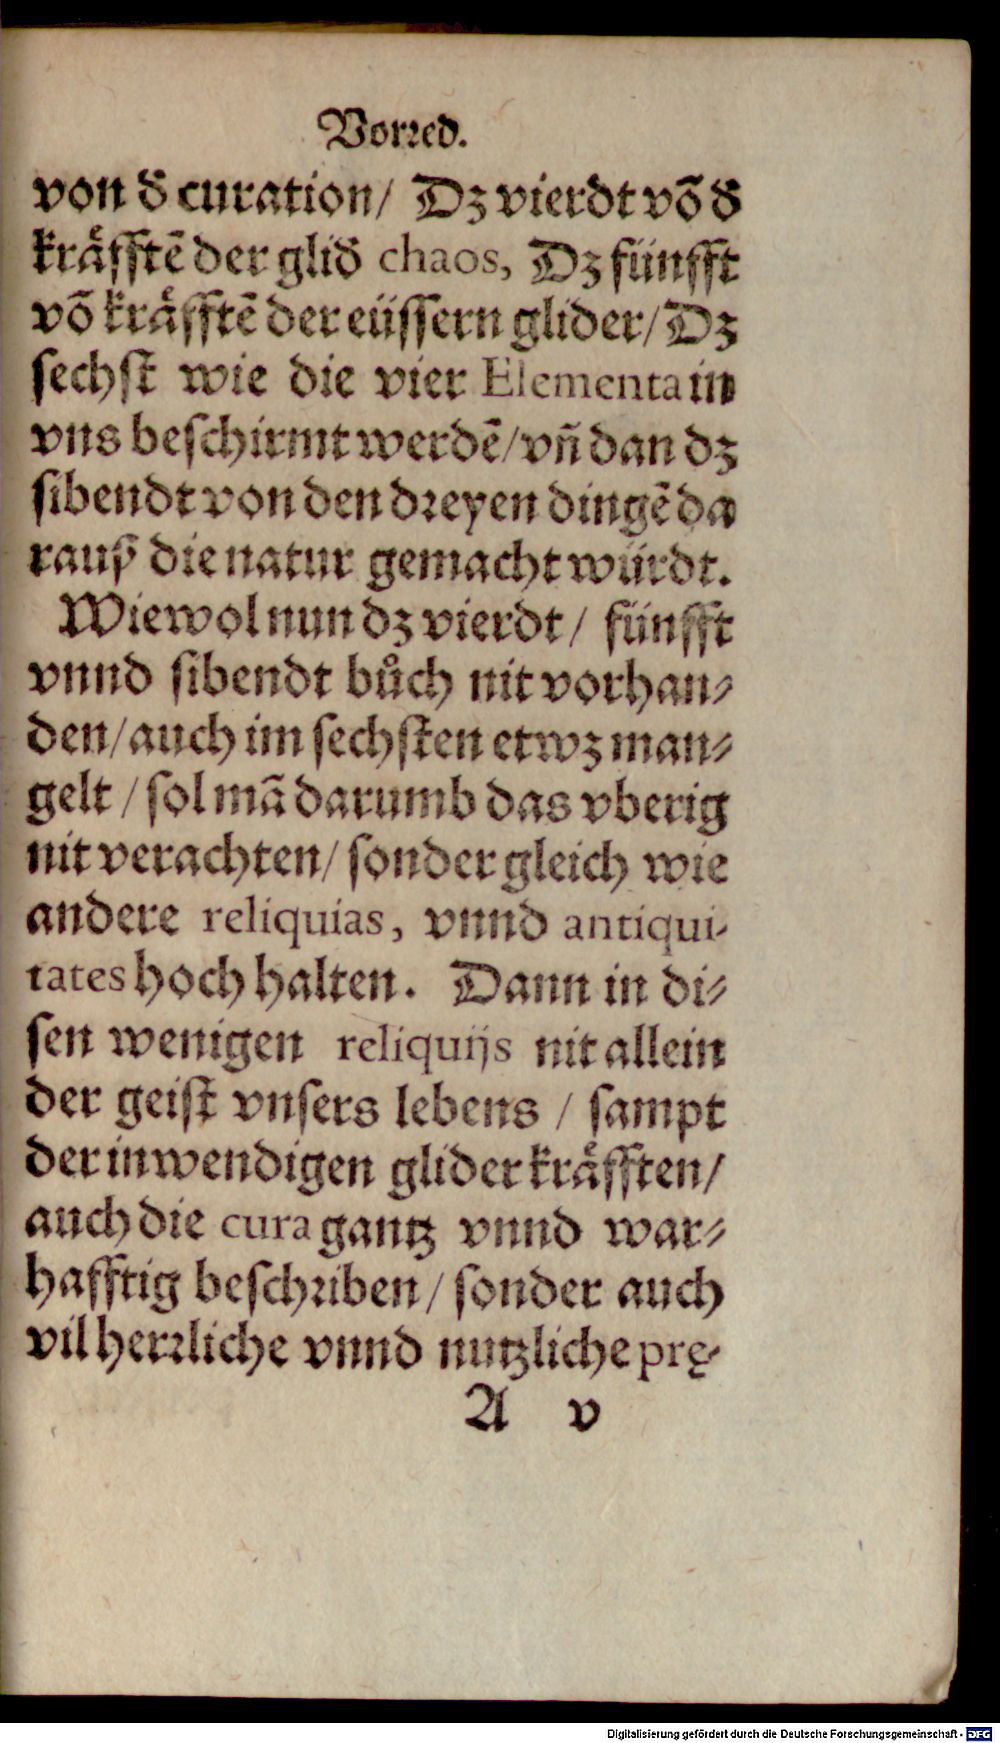 Vorꝛed.
von đ curation/ Dz vierdt võ đ
kraͤfftẽ der gliđ chaos, Dz fünfft
võ kraͤfftẽ der eüssern glider/ Dz
sechst wie die vier Elementa in
vns beschirmt werdẽ/ vñ dan dz
sibendt von den dꝛeyen dingẽ da
rauß die natur gemacht würdt.
Wiewol nun dz vierdt/ fünfft
vnnd sibendt buͦch nit vorhan⸗
den/ auch im sechsten etwz man⸗
gelt/ sol mã darumb das vberig
nit verachten/ sonder gleich wie
andere reliquias, vnnd antiqui-
tates hoch halten. Dann in di⸗
sen wenigen reliquijs nit allein
der geist vnsers lebens/ sampt
der inwendigen glider kraͤfften/
auch die cura gantz vnnd war⸗
hafftig beschꝛiben/ sonder auch
vil herꝛliche vnnd nutzliche prę-
A v
Digitalisierung gefördert durch die Deutsche Forschungsgemeinschaft - DFG